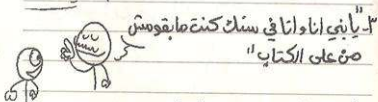 ٣- "يا بني انا و انا في سنك كنت ما بقومش
من على الكتاب"